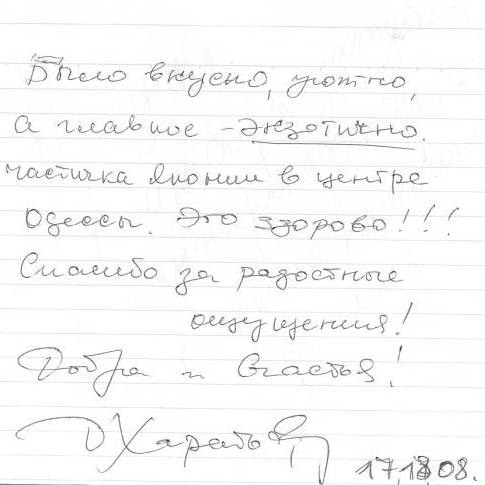 Было вкусно, уютно,
а главное - экзотично.
частичка Японии в центре
Одессы. Это здорово!!!
Спасибо за радостные
ощущения!
Добра и Счастья!
Д Харатьян
08.